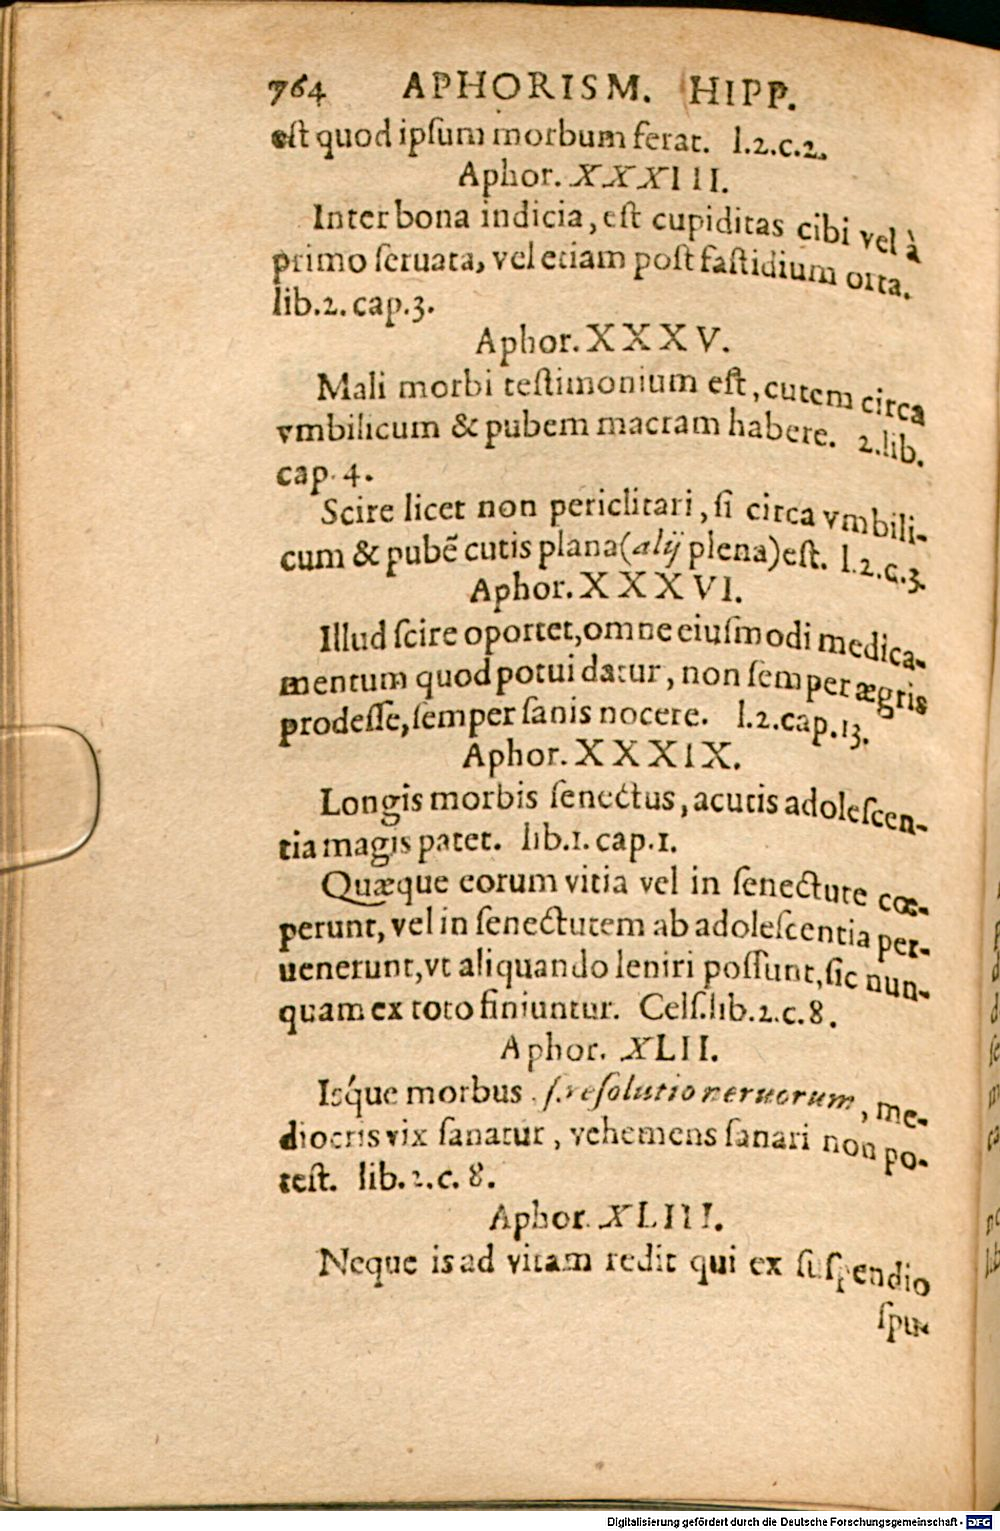 764 APHORISM. HIPP.
est quod ipsum morbum ferat. l.2.c.2.
Aphor. XXXIII.
Inter bona indicia, est cupiditas cibi vel à
primo seruata, vel etiam post fastidium orta.
lib.2. cap.3.
Aphor. XXXV.
Mali morbi testimonium est, cutem circa
vmbilicum & pubem macram habere. 2.lib.
cap. 4.
Scire licet non periclitari, si circa vmbili-
cum & pubē cutis plana (alij plena) est. l.2.c.3.
Aphor. XXXVI.
Illud scire oportet, omne eiusmodi medica-
mentum quod potui datur, non semper ægris
prodesse, semper sanis nocere. l.2.cap.13.
Aphor. XXXIX.
Longis morbis senectus, acutis adolescen-
tia magis patet. lib.1. cap.1.
Quæque eorum vitia vel in senectute cœ-
perunt, vel in senectutem ab adolescentia per-
uenerunt, vt aliquando leniri possunt, sic nun-
quam ex toto finiuntur. Cels.lib.2.c.8.
Aphor. XLII.
Isq́ue morbus s. resolutio neruorum, me-
diocris vix sanatur, vehemens sanari non po-
test. lib.2.c.8.
Aphor. XLIII.
Neque is ad vitam redit qui ex suspendio
spu-
Digitalisierung gefördert durch die Deutsche Forschungsgemeinschaft - DFG